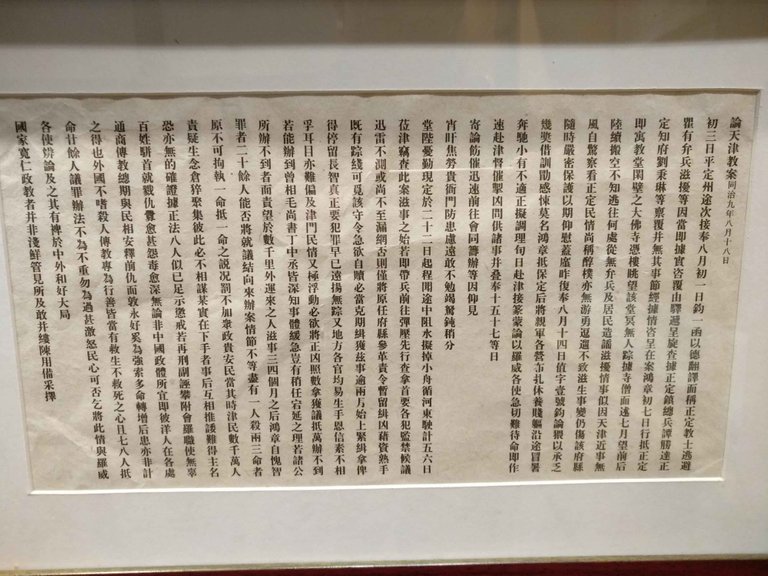 論天津教案同治九年八月十八日
初三日平定州途次接奉八月初一日鈞函以德翻譯面稱正定教士逃避
瞿有弁兵滋擾等因當即據實咨覆由驛遞呈旋查據正定鎮總兵譚勝達正
定知府劉秉琳等稟覆并無其事節經據情咨呈在案鴻章初七日行抵正定
即寓教堂閑壁之大佛寺憑樓眺望該堂冥無人踪據寺僧面述七月望前後
陸續搬空不知逃往何處從無弁兵及居民造謠滋擾情事似因天津近事無
風自驚察看正定民情尚稱醇樸亦無游勇逗遛不致滋生事變仍傷該府縣
隨時嚴密保護以期仰慰藎廑昨復奉八月十四日值字壹號鈞諭猥以承乏
幾甕借訓勛感悚莫名鴻章抵保定后將親軍各營布扎休養賤軀沿途冒暑
奔馳小有不適正擬調理旬日赴津接篆蒙諭以羅威各使急切難待命即作
速赴津督催掣凶問供諸事并叠奉十五十七等日
寄諭飭催迅速前往會同籌辦等因仰見
宵旰焦勞貴衙門防患慮遠敢不勉竭駑鈍稍分
堂陛憂勤現定於二十二日起程聞途中阻水擬掉小舟循河東駛計五六日
莅津竊查此案滋事之始若即帶兵前往彈壓先行查拿首要各犯監禁候議
迅雷不測或尚不至漏網否則僅將原任府縣參革責令暫留緝凶藉資熟手
既有踪綫可覓該守令急欲自贖必當克期緝獲滋事逾兩月始上緊緝拿俾
得停留長智真正要犯罪早已遠揚無踪又地方各官均易生手恩信素不相
孚耳目亦難偏及津門民情又極浮動必欲將正凶照數拿獲議抵萬辦不到
若能辦到曾相毛尚書丁中丞皆深知事體緩急豈有稍任宕延之理若諸公
所辦不到者而責望於數千里外運來之人滋事三四個月之后鴻章自愧智
罪者二十餘人能否將就議結向來辦案情節不等盡有一人殺兩三命者
原不可拘執一命抵一命之說況罰不加衆政貴安民當其時津民數千萬人
貴疑生念倉猝聚集彼此必不相謀某實在下手者事后互相推諉難得主名
恐亦無的確證據正法八人似已足示懲戒若再刑副誣攀附會羅職使無辜
百姓駢首就戮仇釁愈甚怨毒愈深無論非中國政體所宜即彼洋人在各處
通商傳教總期與民相安釋前仇而敦永好奚為強索多命轉增后患亦非計
之得也外國不嗜殺人傳教專為行善皆當有救生不救死之心且七八人抵
命廿餘人議罪辦法不為不重勿為過甚激怒民心可否乞將此情與羅威
各使辨論及之其有裨於中外和好大局
國家寬仁政教者并非淺鮮管見所及敢并縷陳用備采擇